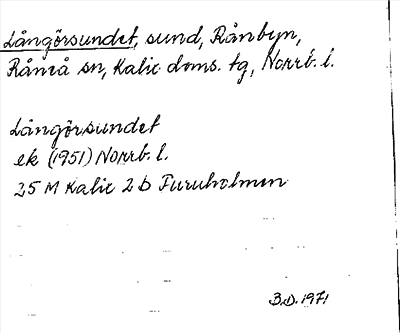 Långörsundet, sund, Rånbyn,
Råneå sn, Kalix doms. tg, Norrb. l.
Långörsundet
ek (1951) Norrb. l.
25 M Kalix 2 b Furuholmen
B.D. 1971